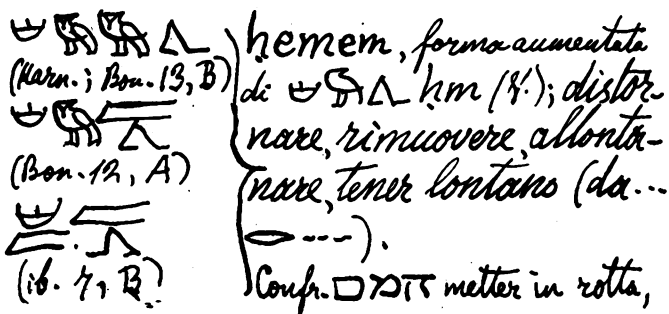 𓅓𓅓𓂻
(Karn.; Bon. 13, B)
𓅓𓐝𓂻
(Bon. 12, A)
𓐝𓐝𓂻
(ib. 7, B)
ḥemem, forma aumentata
di 𓅓𓂻 ḥm; distor-
nare, rimuovere, allonta-
nare, tener lontano (da...
𓂋 ---).
Confr. המם metter in rotta,